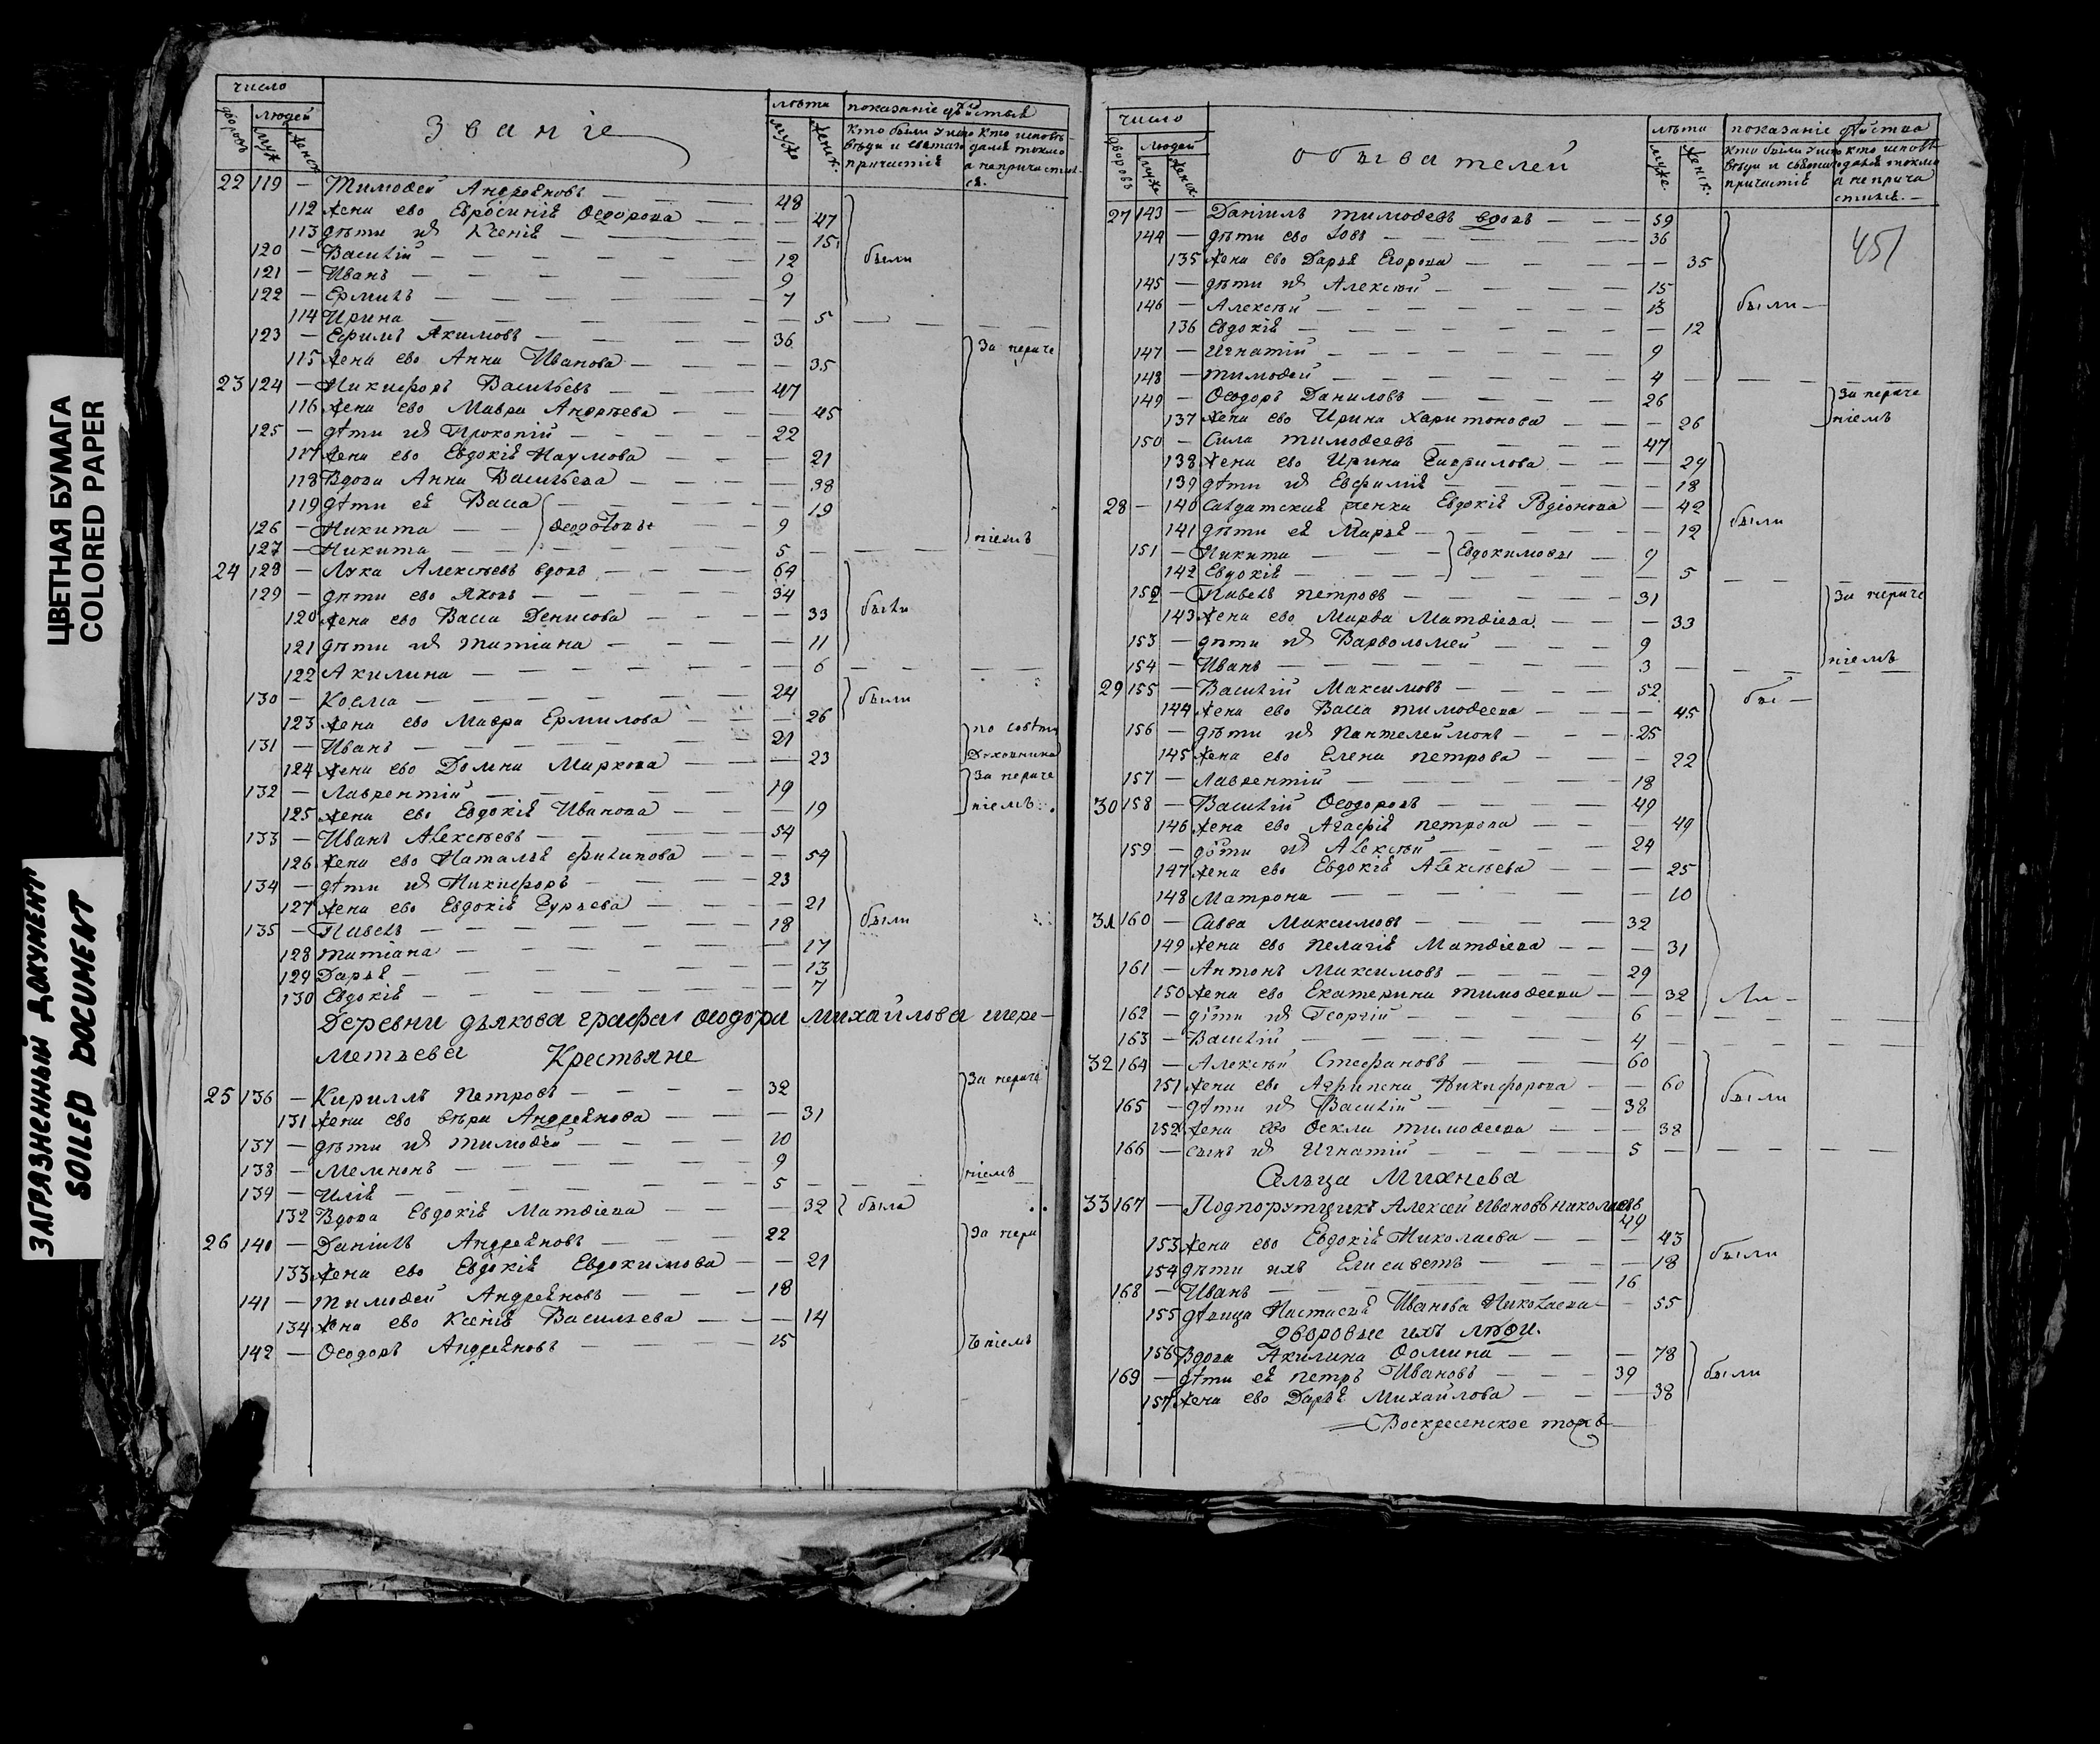 ЦВЕТНАЯ БУМАГА
COLORED PAPER
ЗАГРЯЗНЕННЫЙ ДОКУМЕНТ
SOILED DOCUMENT
число
дворовъ людей
муж женск
званіе
лѣта
муже женск.
показаніе дѣйства
кто были у испо кто исповѣ-
вѣди и святаго дался токмо
причастія а непричастил-
ся.
22 119 — Тимофей Андреяновъ — 48
112 жена ево Евросинія Ѳедорова — 47
113 дѣти их Ксенія — 15
120 — Василій — 12 были
121 — Иванъ — 9
122 — Ермилъ — 7
114 Ирина — 5
123 — Ефимъ Акимовъ — 36
115 жена ево Анна Иванова — 35 За нераче
23 124 — Никифоръ Васильевъ — 47
116 жена ево Мавра Андрѣева — 45
125 — дѣти их Прокопій — 22
117 жена ево Евдокія Наумова — 21
118 Вдова Анна Васильева — 38
119 дѣти ея Васса — 19
126 — Никита — Ѳедотовы — 9
127 — Никита — 5 ніемъ
24 128 — Лука Алексѣевъ вдовъ — 64
129 — дѣти ево Яковъ — 34
120 жена ево Васса Денисова — 33 были
121 дѣти их татіана — 11
122 Акилина — 6
130 — Косма — 24 были
123 жена ево Мавра Ермилова — 26
131 — Иванъ — 21 по совѣту
124 жена ево Домна Маркова — 23 Духовника
132 — Лаврентій — 19 За нераче
125 жена ево Евдокія Иванова — 19 ніемъ
133 — Иванъ Алексѣевъ — 54
126 жена ево Наталья филипова — 54
134 — дѣти их Никифоръ — 23
127 жена ево Евдокія Гурьева — 21
135 — Павелъ — 18 были
128 татіана — 17
129 Дарья — 13
130 Евдокія — 7
Деревни дьякова графа Ѳеодора Михайлова шере-
метьева Крестьяне
25 136 — Кириллъ Петровъ — 32 За нераче
131 жена ево вѣра Андреянова — 31
137 — дѣти их тимофей — 10
138 — Мемнонъ — 9 ніемъ
139 — Илія — 5
132 Вдова Евдокія Матвіева — 32 была
26 140 — Даніилъ Андреяновъ — 22 За нера
133 жена ево Евдокія Евдокимова — 21
141 — тимофей Андреяновъ — 18
134 жена ево Ксенія Васильева — 14
142 — Ѳеодоръ Андреяновъ — 15 ченіемъ
число
дворовъ людей
муже женск.
обывателей
лѣта
муже. женск.
показаніе дѣйства
кто были у испо кто исповѣ
вѣди и святаго дался токмо
причастія а неприча
стился. —
451
27 143 — Даніилъ тимофеевъ вдовъ — 59
144 — дѣти ево Іовъ — 36
135 жена ево Дарья Егорова — 35
145 — дѣти их Алексѣй — 15
146 — Алексѣй — 13 были —
136 Евдокія — 12
147 — Игнатій — 9
148 — тимофей — 4
149 — Ѳеодоръ Даниловъ — 26 За нераче
137 жена ево Ирина Харитонова — 26 ніемъ
150 — Сила тимофеевъ — 47
138 жена ево Ирина Гаврилова — 29
139 дѣти их Евфимія — 18
28 — 140 Салдатская женка Евдокія Родіонова — 42
141 дѣти ея Марья — 12 были
151 — Никита — Евдокимовы — 9
142 Евдокія — 5
152 — Павелъ петровъ — 31 За нераче
143 жена ево Марфа Матвіева — 33
153 — дѣти их Варфоломей — 9
154 — Иванъ — 3 ніемъ
29 155 — Василій Максимовъ — 52 бы —
144 жена ево Васса тимофеева — 45
156 — дѣти их Пантелеймонъ — 25
145 жена ево Елена петрова — 22
157 — Лаврентій — 18
30 158 — Василій Ѳеодоровъ — 49
146 жена ево Агафія петрова — 49
159 — дѣти их Алексѣй — 24
147 жена ево Евдокія Алексѣева — 25
148 Матрона — 10
31 160 — Савва Максимовъ — 32
149 жена ево пелагія Матвіева — 31
161 — Антонъ Максимовъ — 29
150 жена ево Екатерина тимофеева — 32 ли —
162 — дѣти их Георгій — 6
163 — Василій — 4
32 164 — Алексѣй Стефановъ — 60
151 жена ево Агрипена Никифорова — 60
165 — дѣти их Василій — 38 были
152 жена ево Ѳекла тимофеева — 38
166 — сынъ их Игнатій — 5
Сельца Михнева
33 167 — Подпорутчикъ Алексей Ивановъ николаевъ 49
153 жена ево Евдокія Николаева — 43
154 дѣти ихъ Елисаветъ — 18 были
168 — Иванъ — 16
155 дѣвица Настасья Иванова Николаева — 55
Дворовые ихъ люди.
156 Вдова Акилина Ѳомина — 78
169 — дѣти ея петръ Ивановъ — 39 были
157 жена ево Дарья Михайлова — 38
Воскресенское тожъ